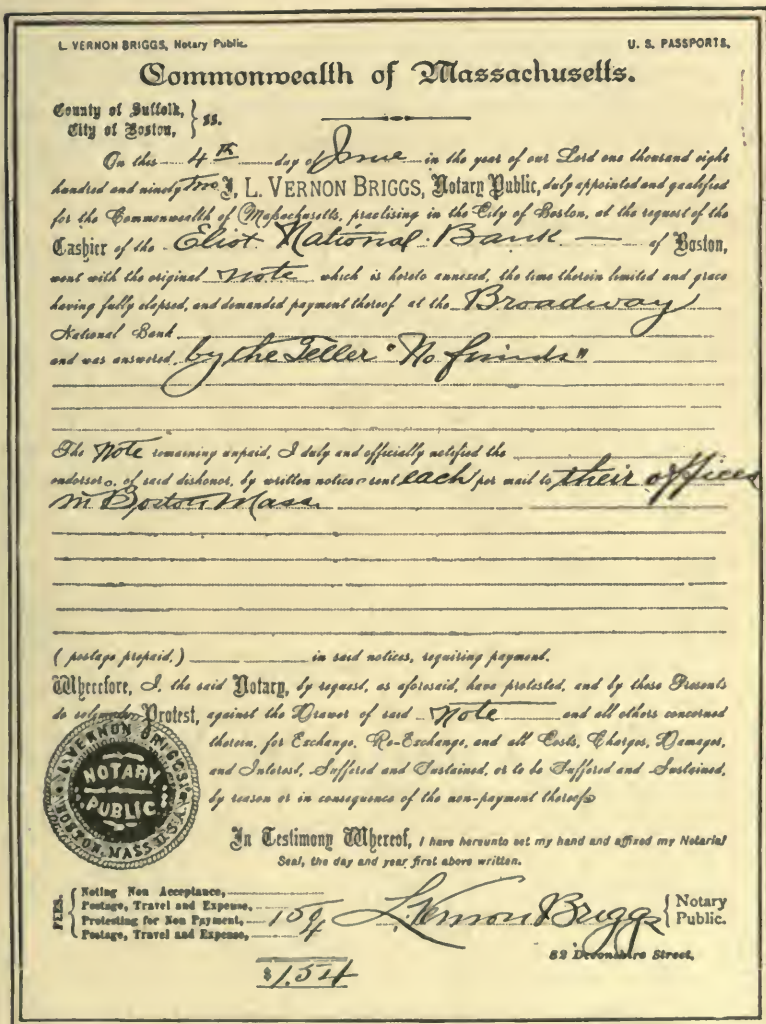 L. VERNON BRIGGS, Notary Public. U. S. PASSPORTS.
Commonwealth of Massachusetts.
County of Suffolk,
City of Boston, } ss.
On this 4th day of June in the year of our Lord one thousand eight
hundred and ninety two I, L. VERNON BRIGGS, Notary Public, duly appointed and qualified
for the Commonwealth of Massachusetts, practising in the City of Boston, at the request of the
Cashier of the Eliot National Bank — of Boston,
went with the original note which is hereto annexed, the time therein limited and grace
having fully elapsed, and demanded payment thereof at the Broadway
National Bank
and was answered, by the Teller "No funds"
The Note remaining unpaid, I duly and officially notified the
endorsers, of said dishonor, by written notices sent each per mail to their offices
in Boston Mass.
(postage prepaid,) in said notices, requiring payment.
Wherefore, I, the said Notary, by request, as aforesaid, have protested, and by these Presents
do solemnly Protest, against the Drawer of said Note and all others concerned
therein, for Exchange, Re-Exchange, and all Costs, Charges, Damages,
and Interest, Suffered and Sustained, or to be Suffered and Sustained,
by reason or in consequence of the non-payment thereof.
L. VERNON BRIGGS,
NOTARY
PUBLIC
BOSTON, MASS. U.S.A.
In Testimony Whereof, I have hereunto set my hand and affixed my Notarial
Seal, the day and year first above written.
FEES. { Noting Non Acceptance,
Postage, Travel and Expense,
Protesting for Non Payment, 154
Postage, Travel and Expense,
L. Vernon Briggs { Notary
Public.
82 Devonshire Street.
$1.54